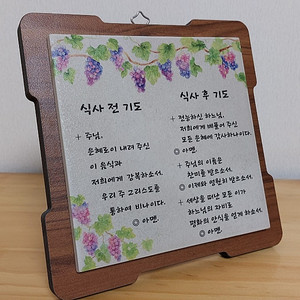 식사 전 기도
+ 주님,
은혜로이 내려 주신
이 음식과
저희에게 강복하소서.
우리 주 그리스도를
통하여 비나이다.
◎ 아멘.
식사 후 기도
+ 전능하신 하느님,
저희에게 베풀어 주신
모든 은혜에 감사하나이다.
◎ 아멘.
+ 주님의 이름은
찬미를 받으소서.
◎ 이제와 영원히 받으소서.
+ 세상을 떠난 모든 이가
하느님의 자비로
평화의 안식을 얻게 하소서.
◎ 아멘.